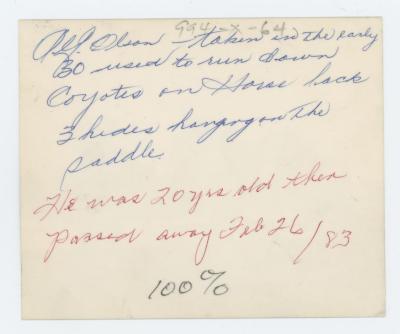 994-X-64
Alf. Olson - taken in the early
30 used to run down
Coyotes on Horse back
3 hides hanging on the
saddle.
He was 20 yrs old then
passed away Feb 26/83
100%